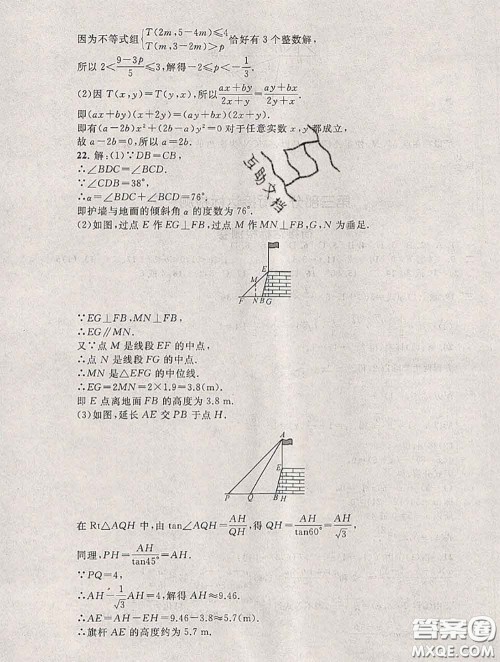 因为不等式组{T(2m,5-4m)≤4
T(m,3-2m)>p 恰好有3个整数解,
所以2<(9-3p)/5≤3,解得-2≤p<-1/3.
(2)因T(x,y)=T(y,x),所以(ax+by)/(2x+y)=(ay+bx)/(2y+x).
即(ax+by)(x+2y)=(ay+bx)(2x+y).
即有(a-2b)x²+(2b-a)y²=0对于任意实数x,y都成立,
故a-2b=0,所以a=2b.
22.解:(1)∵DB=CB,
∴∠BDC=∠BCD,
∵∠CDB=38°,
∴α=∠BDC+∠BCD=76°,
即护墙与地面的倾斜角α的度数为76°.
(2)如图,过点E作EG⊥FB,过点M作MN⊥FB,G、N为垂足.
E
M
F N B G
∵EG⊥FB,MN⊥FB,
∴EG∥MN.
又∵点M是线段EF的中点,
∴点N是线段FG的中点.
∴MN是△EFG的中位线.
∴EG=2MN=2×1.9=3.8(m).
即E点离地面FB的高度为3.8 m.
(3)如图,延长AE交PB于点H.
A
E
P Q B H
在Rt△AQH中,由tan∠AQH=AH/QH,得QH=AH/tan60°=AH/√3,
同理,PH=AH/tan45°=AH.
∵PQ=4,
∴AH-1/√3AH=4,解得AH≈9.46.
∴AE=AH-EH=9.46-3.8≈5.7(m).
∴旗杆AE的高度约为5.7 m,
互助文档
答案圈
MXQE.COM